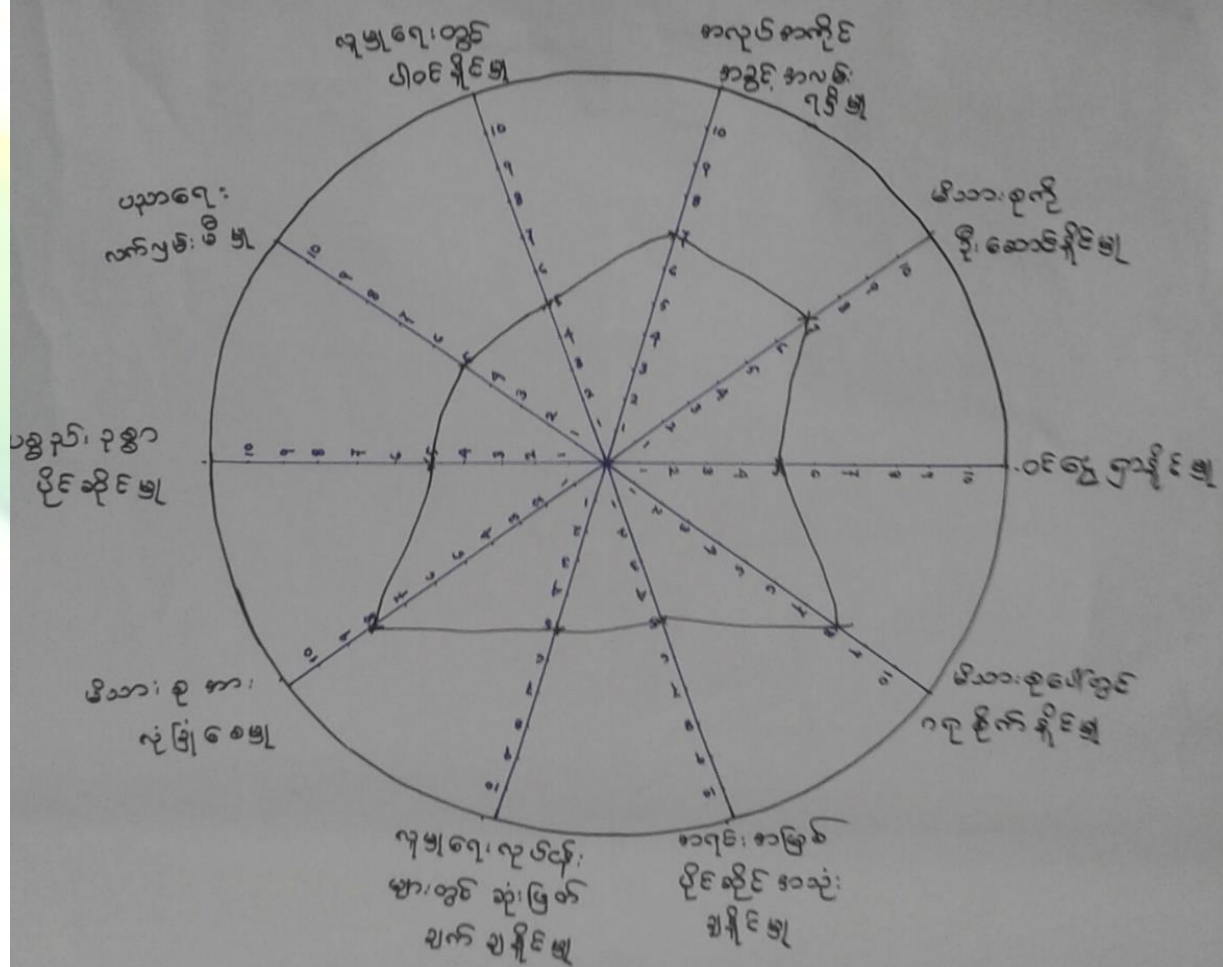 လူမှုရေးတွင်
ပါဝင်နိုင်မှု
အလုပ်အကိုင်
အခွင့်အလမ်း
ရရှိမှု
မိသားစုကို
ဦးဆောင်နိုင်မှု
ဝင်ငွေရှာနိုင်မှု
မိသားစုပေါ်တွင်
ဂရုစိုက်နိုင်မှု
အရင်းအမြစ်
ပိုင်ဆိုင်အသုံး
ချနိုင်မှု
လူမှုရေးလုပ်ငန်း
များတွင် ဆုံးဖြတ်
ချက် ချနိုင်မှု
မိသားစု အား
လုံခြုံစေမှု
ပစ္စည်းဥစ္စာ
ပိုင်ဆိုင်မှု
ပညာရေး
လက်လှမ်းမီမှု
10
9
8
7
6
5
4
3
2
1